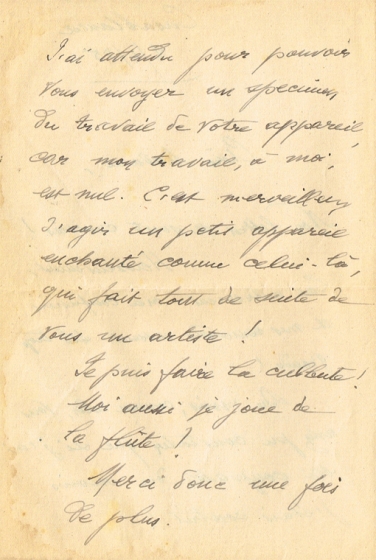 J'ai attendu pour pouvoir
vous envoyer un specimen
du travail de votre appareil,
car mon travail, à moi,
est nul. C'est merveilleux
d'agir un petit appareil
enchanté comme celui-là,
qui fait tout de suite de
vous un artiste !
Je puis faire la culbute !
Moi aussi je joue de
la flûte !
Merci donc une fois
de plus.